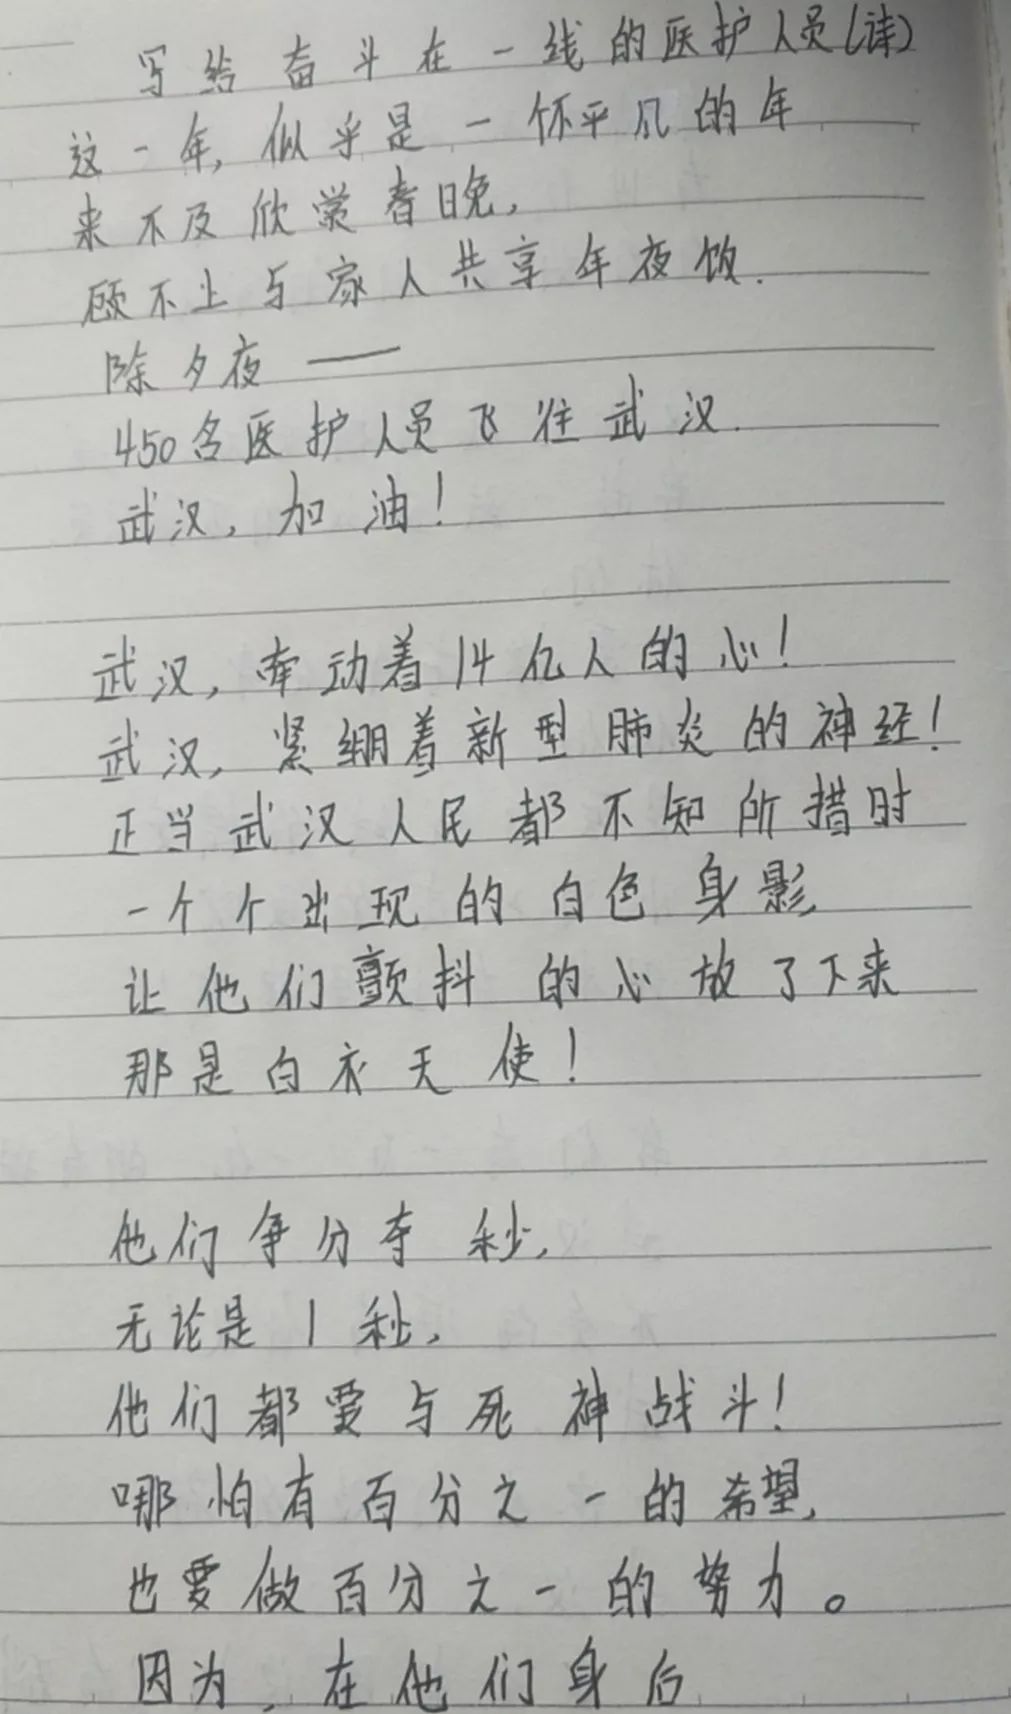 写给奋斗在一线的医护人员(诗)
这一年,似乎是一怀平凡的年
来不及欣赏春晚,
顾不上与家人共享年夜饭.
除夕夜——
450名医护人员飞往武汉.
武汉,加油!
武汉,牵动着14亿人的心!
武汉,紧绷着新型肺炎的神经!
正当武汉人民都不知所措时
一个个出现的白色身影,
让他们颤抖的心放了下来
那是白衣天使!
他们争分夺秒,
无论是1秒,
他们都要与死神战斗!
哪怕有百分之一的希望,
也要做百分之一的努力。
因为,在他们身后